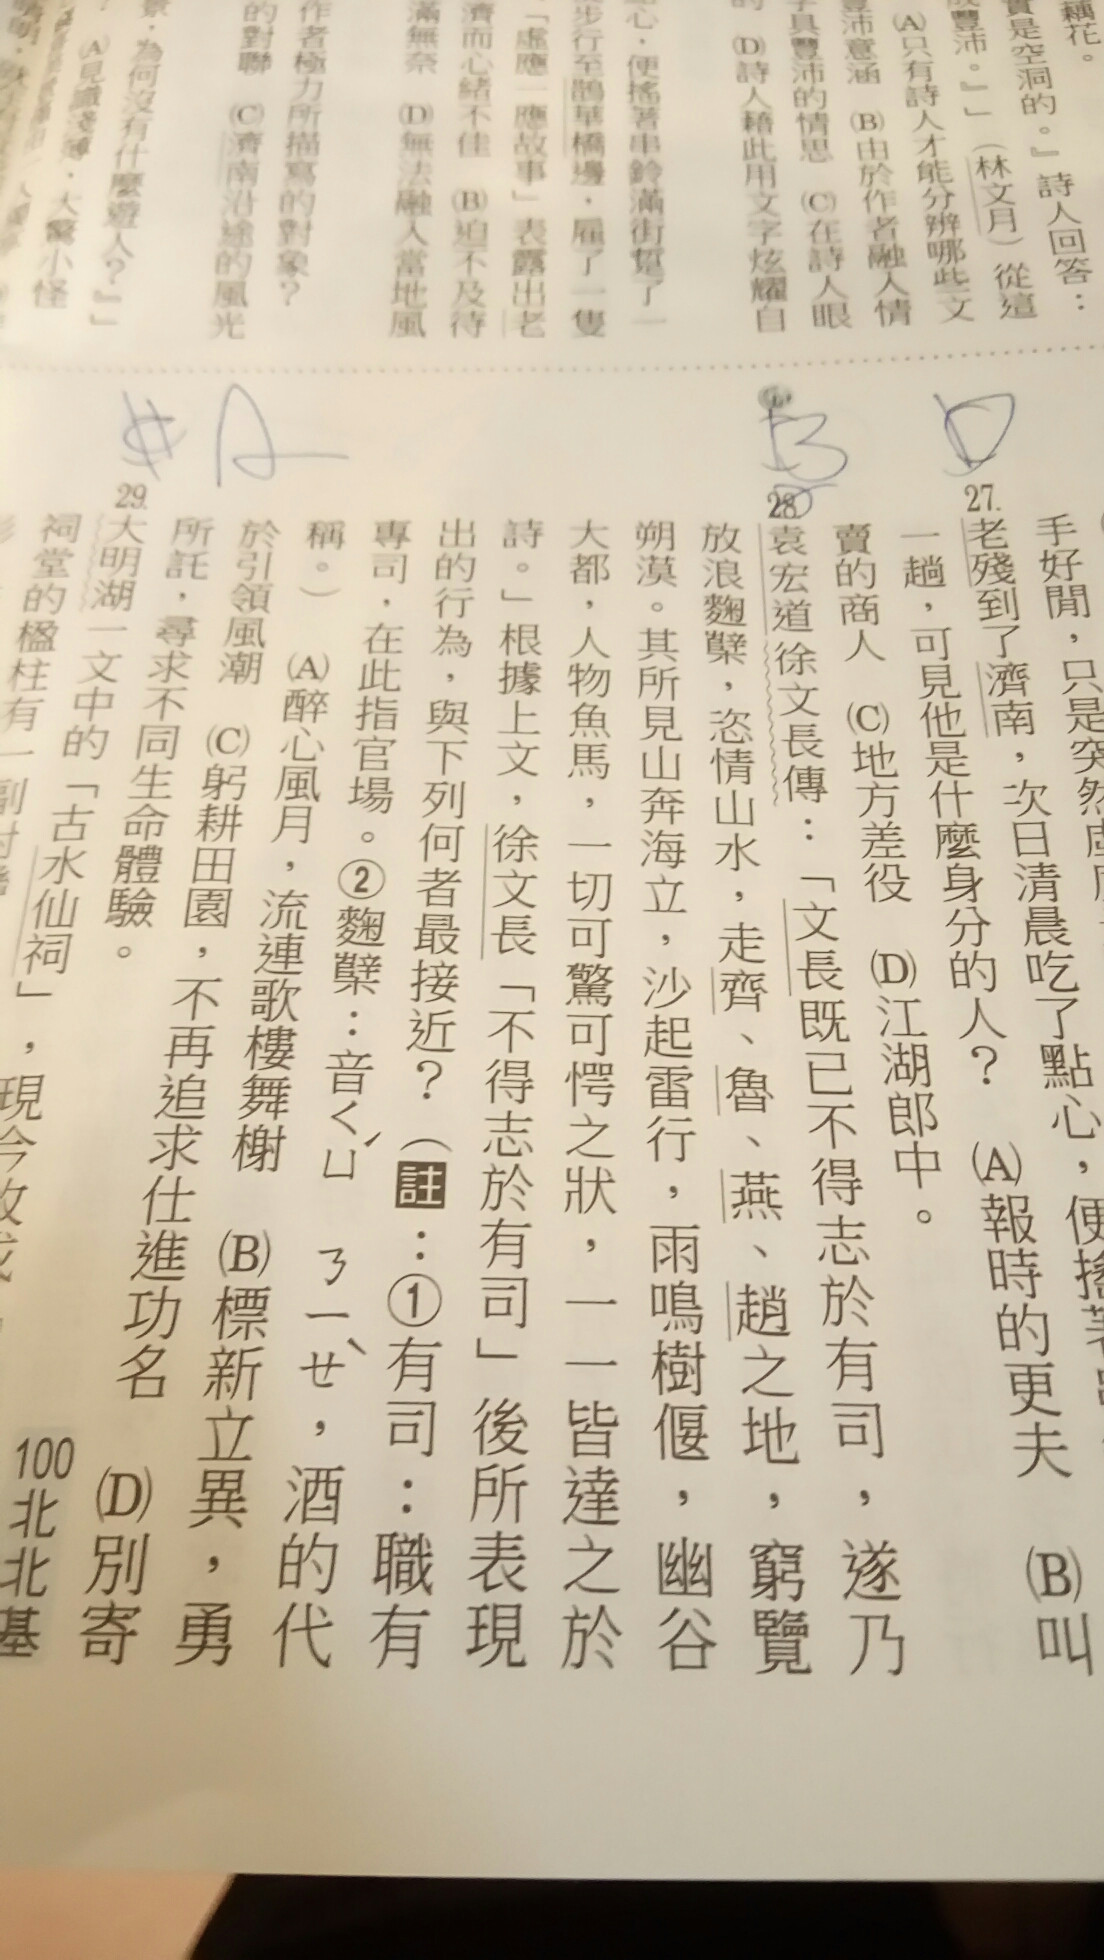 藕花。
實是空洞的。』詩人回答：
成豐沛。』」（林文月）從這
(A)只有詩人才能分辨哪些文
豐沛意涵 (B)由於作者融入情
字具豐沛的情思 (C)在詩人眼
的 (D)詩人藉此用文字炫耀自
點心，便搖著串鈴滿街踅了一
步行至鵲華橋邊，雇了一隻
「虛應一應故事」表露出老
濟而心緒不佳 (B)迫不及待
滿無奈 (D)無法融入當地風
作者極力所描寫的對象？
的對聯 (C)濟南沿途的風光
景，為何沒有什麼遊人？』」
(A)見識淺薄，大驚小怪
手好閒，只是突然
27.
老殘到了濟南，次日清晨吃了點心，便搖著
一趟，可見他是什麼身分的人？ (A)報時的更夫 (B)叫
賣的商人 (C)地方差役 (D)江湖郎中。
D
28.
袁宏道徐文長傳：「文長既已不得志於有司，遂乃
放浪麴櫱，恣情山水，走齊、魯、燕、趙之地，窮覽
朔漠。其所見山奔海立，沙起雷行，雨鳴樹偃，幽谷
大都，人物魚馬，一切可驚可愕之狀，一一皆達之於
詩。」根據上文，徐文長「不得志於有司」後所表現
出的行為，與下列何者最接近？（註：①有司：職有
專司，在此指官場。②麴櫱：音ㄑㄩˊ ㄋㄧㄝˋ，酒的代
稱。） (A)醉心風月，流連歌樓舞榭 (B)標新立異，勇
於引領風潮 (C)躬耕田園，不再追求仕進功名 (D)別寄
所託，尋求不同生命體驗。
B
29.
大明湖一文中的「古水仙祠」，現今改成
祠堂的楹柱有一副對
A
100北北基